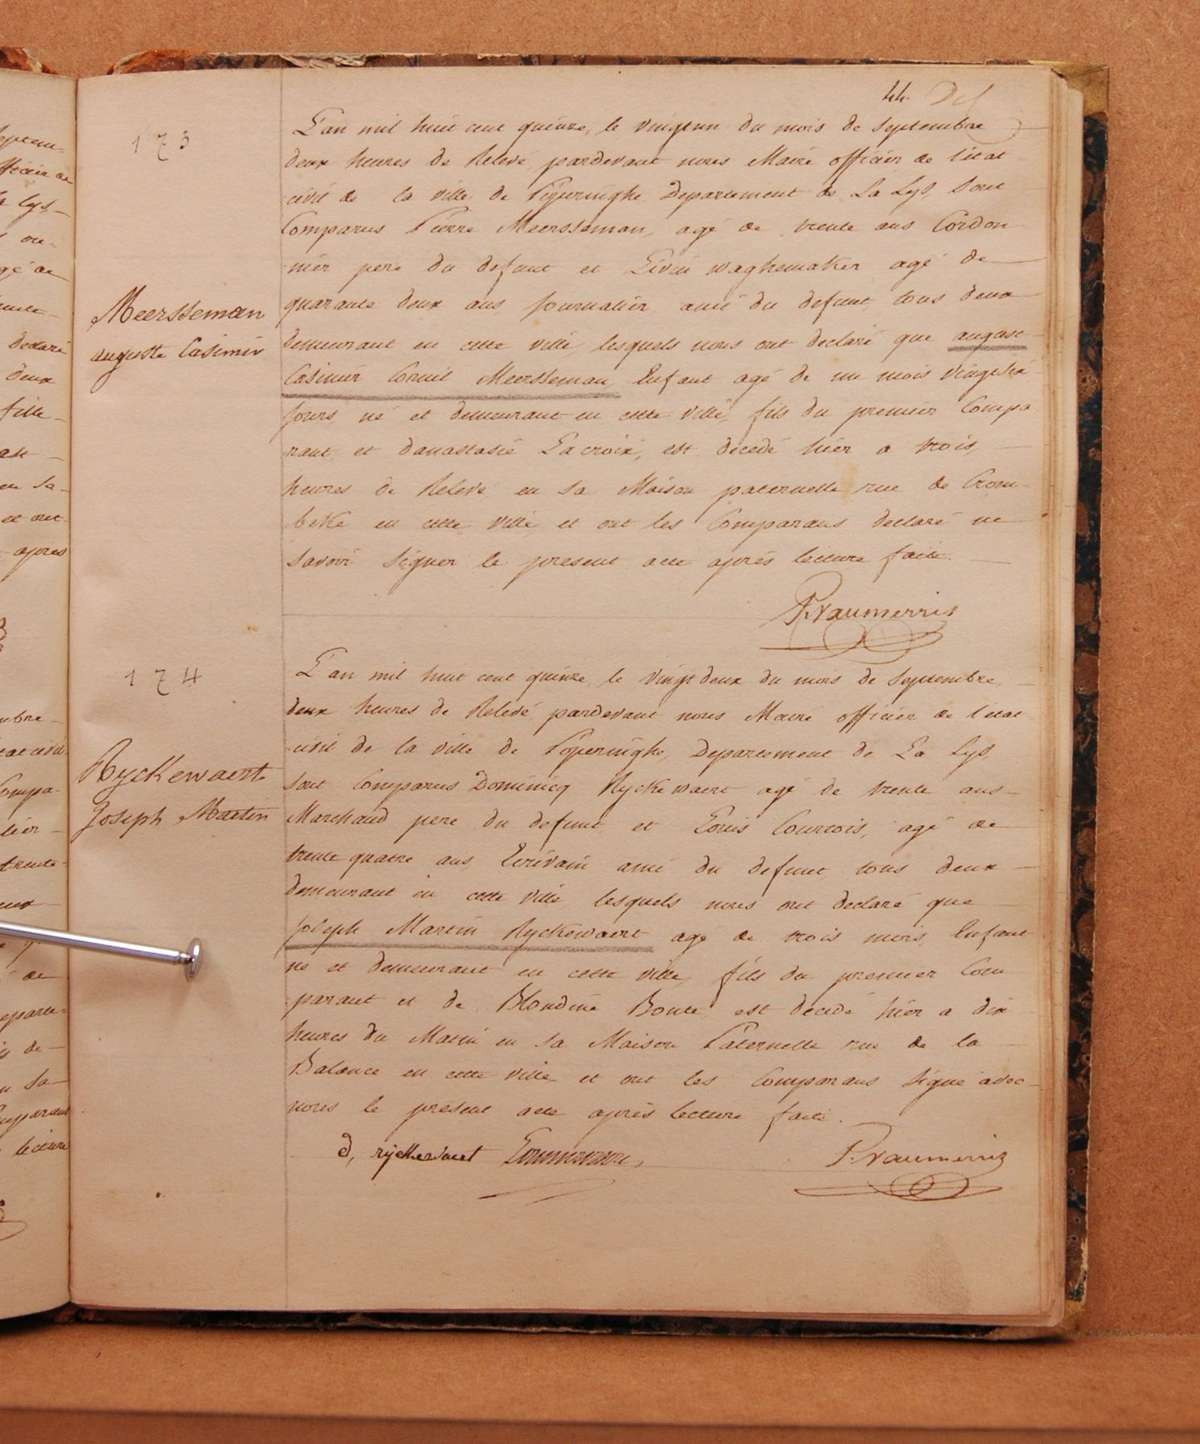 44.
173
Meersseman
auguste Casimir
L'an mil huit cent quinze, le vingtun du mois de Septembre
deux heures de Relevé pardevant nous Maire officier de l'état
civil de la ville de Poperinghe Departement de La Lys, Sont
Comparus Pierre Meersseman, agé de trente ans Cordon
nier pere du defunt et Livin waghemaker agé de
quarante deux ans Journalier amis du defunt, tous deux
demeurant en cette ville lesquels nous ont declaré que august
Casimir Cornil Meersseman Enfant agé de un mois vingt
jours né et demeurant en cette ville, fils du premier Compa
rant et d'anastasie Lacroix, est décédé hier a trois
heures de Relevé en sa Maison paternelle rue de Crom-
beke en cette ville, et ont les Comparans declaré ne
savoir signer le present acte après lecture faite.
P. Vaumerris
174
Ryckewaert
Joseph Martin
L'an mil huit cent quinze le vingt deux du mois de Septembre
deux heures de Relevé pardevant nous Maire officier de l'etat
civil de la ville de Poperinghe, Departement de La Lys,
sont Comparus Dominicq Ryckewaert agé de trente ans
Marchand pere du defunt et Louis Courtois, agé de
trente quatre ans Ecrivain ami du defunt tous deux
demeurant en cette ville lesquels nous ont declaré que
Joseph Martin Ryckewaert agé de trois mois Enfant
né et demeurant en cette ville, fils du premier Com
parant et de Blondine Bonte est décédé hier a dix
heures du Matin en sa Maison Paternelle rue de la
Balance en cette ville et ont les Comparans Signé avec
nous le present acte après lecture faite.
d, ryckewaert P. Vaumerris